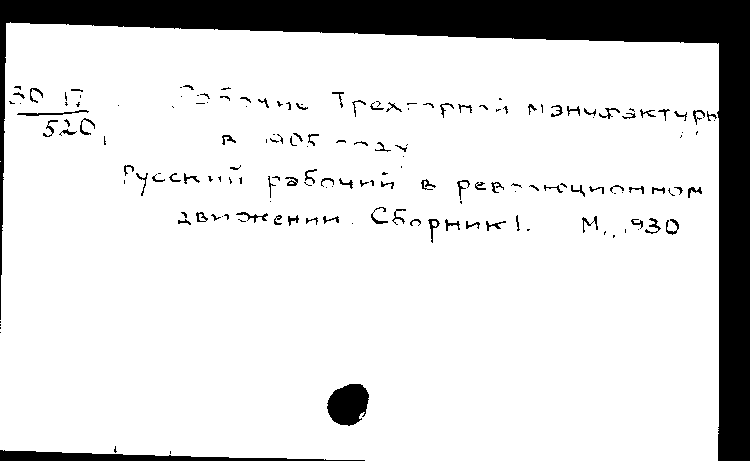 30 17 Рабочие Трехгорной мануфактуры
520 в 1905 году
Русский рабочий в революционном
движении. Сборник 1. М., 1930